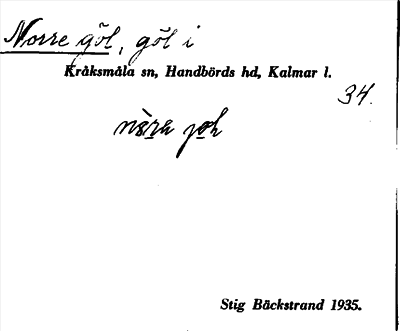 Norre göl, göl i
Kråksmåla sn, Handbörds hd, Kalmar l.
34.
Stig Bäckstrand 1935.